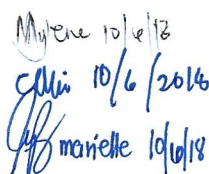 Mylene 10/6/18
10/6/2018
marielle 10/6/18